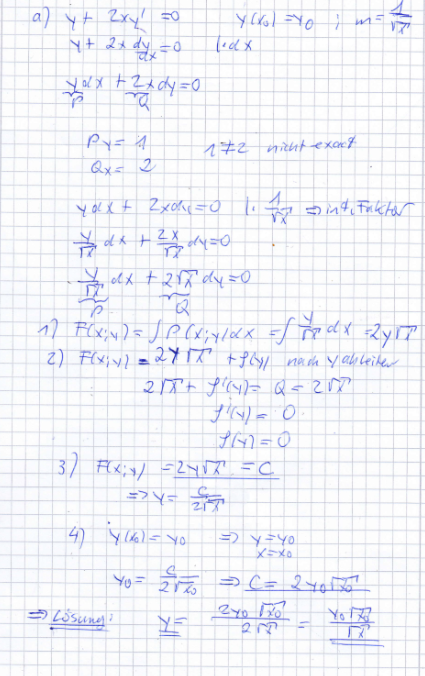 a) y + 2xy' = 0    y(x₀) = y₀ ; m = 1/√x
y + 2x dy/dx = 0   |·dx
y dx + 2x dy = 0
P   Q
Py = 1   1 ≠ 2 nicht exact
Qx = 2
y dx + 2x dy = 0   |· 1/√x ⇒ int. Faktor
y/√x dx + 2x/√x dy = 0
y/√x dx + 2√x dy = 0
P   Q
1) F(x;y) = ∫ P(x;y) dx = ∫ y/√x dx = 2y√x
2) F(x;y) = 2y√x + f(y) nach y ableiten
2√x + f'(y) = Q = 2√x
f'(y) = 0
f(y) = 0
3) F(x;y) = 2y√x = C
⇒ y = C/2√x
4) y(x₀) = y₀ ⇒ y = y₀
x = x₀
y₀ = C/2√x₀ ⇒ C = 2y₀√x₀
⇒ Lösung: y = 2y₀√x₀/2√x = y₀√x₀/√x